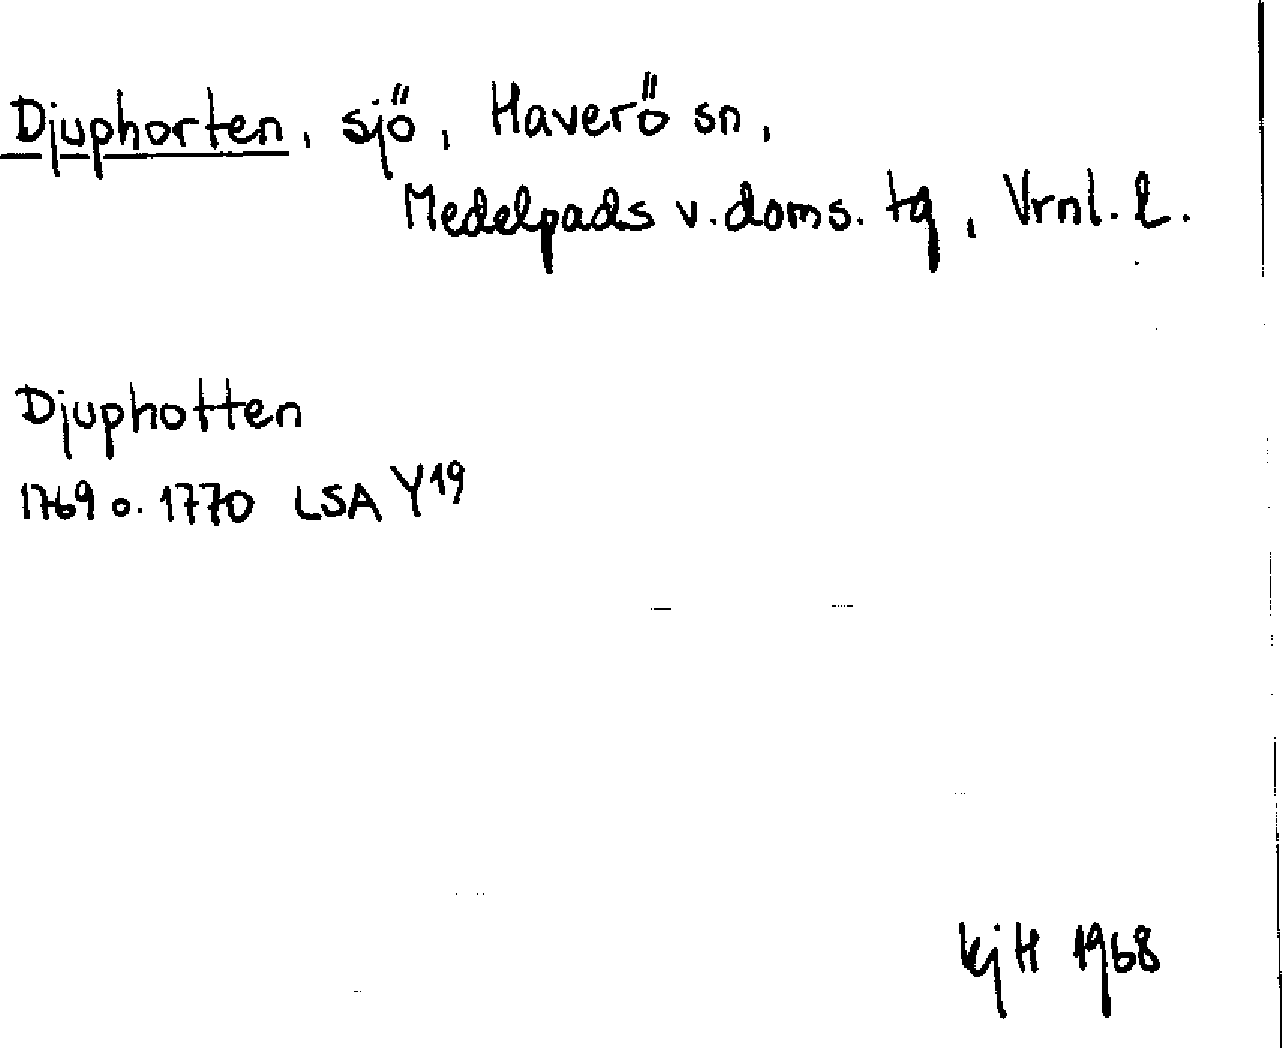 Djuphorten, sjö, Haverö sn,
Medelpads v. doms. tg, Vrnl. l.
Djuphotten
1769 o. 1770 LSA Y19
KjH 1968